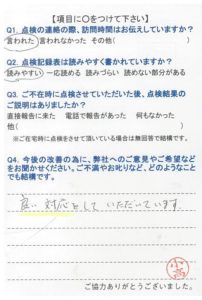 【項目に○をつけて下さい】
Q1. 点検の連絡の際、訪問時間はお伝えしていますか？
言われた 言われなかった その他(
Q2. 点検記録表は読みやすく書かれていますか？
読みやすい 一応読める 読みづらい 読めない部分がある
Q3. ご不在時に点検させていただいた後、点検結果の
ご説明はありましたか？
直接報告に来た 電話で報告があった 何もなかった
他( )
※ご在宅時に点検をさせて頂いている場合は無回答で結構です。
Q4. 今後の改善の為に、弊社へのご意見やご希望など
をお聞かせください。ご不満やお叱りなど、どのようなこと
でも結構です。
良い対応をしていただいています。
ご協力ありがとうございました。